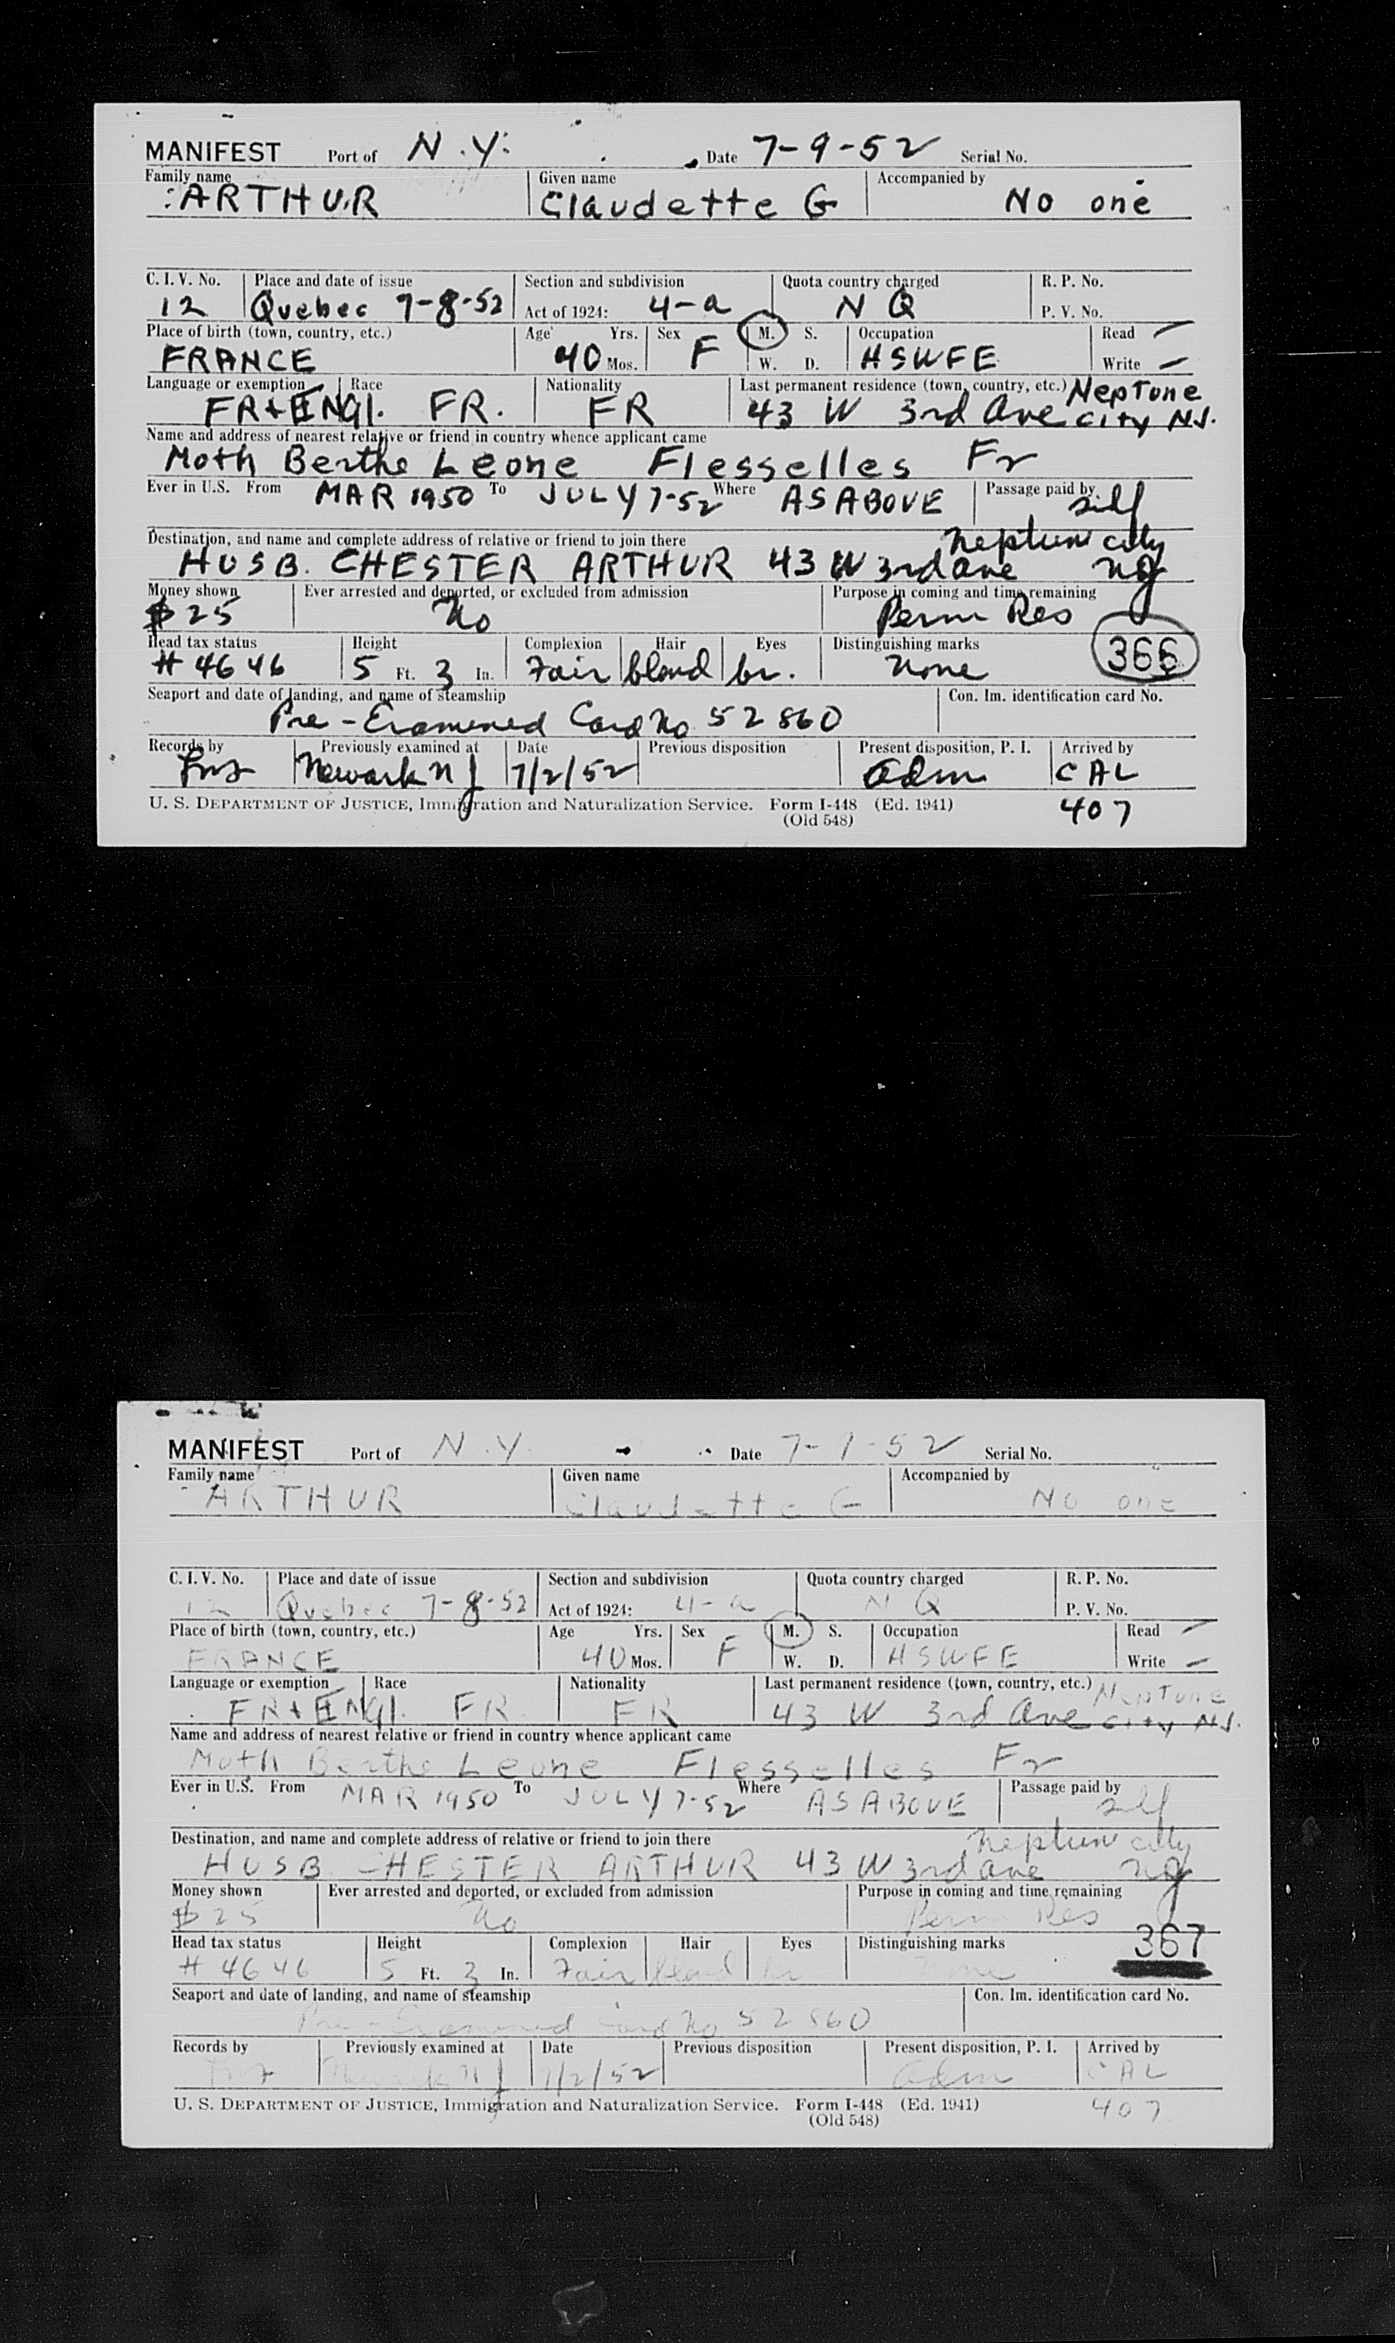 MANIFEST Port of N.Y. Date 7-9-52 Serial No.
Family name Given name Accompanied by
ARTHUR Claudette G No one
C. I. V. No. Place and date of issue Section and subdivision Quota country charged R. P. No.
12 Quebec 7-8-52 Act of 1924: 4-a N Q P. V. No.
Place of birth (town, country, etc.) Age Yrs. Sex M. S. Occupation Read
FRANCE 40 Mos. F W. D. HSWFE Write
Language or exemption Race Nationality Last permanent residence (town, country, etc.) Neptune
FR + ENGl. FR. FR 43 W 3rd Ave City N.J.
Name and address of nearest relative or friend in country whence applicant came
Moth Berthe Leone Flesselles Fr
Ever in U.S. From MAR 1950 To JULY 7-52 Where AS ABOVE Passage paid by self
Destination, and name and complete address of relative or friend to join there Neptune City
HUSB. CHESTER ARTHUR 43 W 3rd Ave NJ
Money shown Ever arrested and deported, or excluded from admission Purpose in coming and time remaining
$ 25 No Perm Res
Head tax status Height Complexion Hair Eyes Distinguishing marks 366
# 4646 5 Ft. 3 In. Fair blond br. none
Seaport and date of landing, and name of steamship Con. Im. identification card No.
Pre-Examined Card No 52860
Records by Previously examined at Date Previous disposition Present disposition, P. I. Arrived by
Newark NJ 7/2/52 adm CAL
U. S. DEPARTMENT OF JUSTICE, Immigration and Naturalization Service. Form I-448 (Ed. 1941) 407
(Old 548)
MANIFEST Port of N.Y. Date 7-9-52 Serial No.
Family name Given name Accompanied by
ARTHUR Claudette G No one
C. I. V. No. Place and date of issue Section and subdivision Quota country charged R. P. No.
12 Quebec 7-8-52 Act of 1924: 4-a N Q P. V. No.
Place of birth (town, country, etc.) Age Yrs. Sex M. S. Occupation Read
FRANCE 40 Mos. F W. D. HSWFE Write
Language or exemption Race Nationality Last permanent residence (town, country, etc.) Neptune
FR + ENGl. FR. FR 43 W 3rd Ave City N.J.
Name and address of nearest relative or friend in country whence applicant came
Moth Berthe Leone Flesselles Fr
Ever in U.S. From MAR 1950 To JULY 7-52 Where AS ABOVE Passage paid by self
Destination, and name and complete address of relative or friend to join there Neptune City
HUSB. CHESTER ARTHUR 43 W 3rd Ave NJ
Money shown Ever arrested and deported, or excluded from admission Purpose in coming and time remaining
$ 25 No Perm Res
Head tax status Height Complexion Hair Eyes Distinguishing marks 367
# 4646 5 Ft. 3 In. Fair blond br none
Seaport and date of landing, and name of steamship Con. Im. identification card No.
Pre-Examined Card No 52860
Records by Previously examined at Date Previous disposition Present disposition, P. I. Arrived by
Newark NJ 7/2/52 adm CAL
U. S. DEPARTMENT OF JUSTICE, Immigration and Naturalization Service. Form I-448 (Ed. 1941) 407
(Old 548)